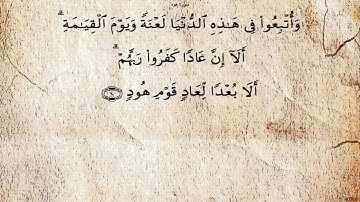 وَأُتْبِعُوا۟ فِى هَـٰذِهِ ٱلدُّنْيَا لَعْنَةً وَيَوْمَ ٱلْقِيَـٰمَةِ ۗ
أَلَآ إِنَّ عَادًا كَفَرُوا۟ رَبَّهُمْ ۗ
أَلَا بُعْدًا لِّعَادٍ قَوْمِ هُودٍ ۝٦٠